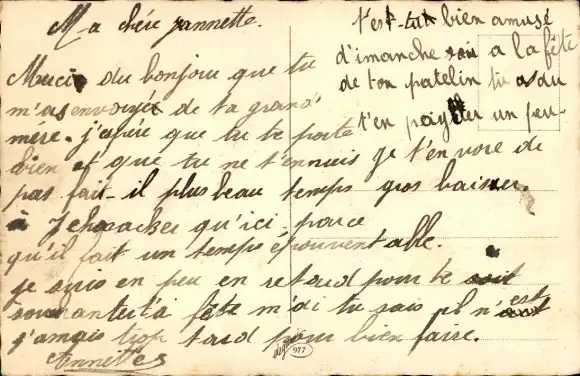 Ma chére jannette.
Merci du bonjour que tu
m'as envoyée de ta grand
mere. j'espére que tu te porte
bien et que tu ne t'ennuis
pas fait-il plus beau temps
à qu'ici parce
qu'il fait un temps épouventable.
je suis en peu en retard pour te
souhanter t'a fête m'ai tu sais il n'est
j'amais trop tard pour bien faire.
Annette
t'es t-tu bien amusé
d'imanche a la fête
de ton patelin tu as du
t'en payer un peu.
je t'en voie de
gros baiser.
977